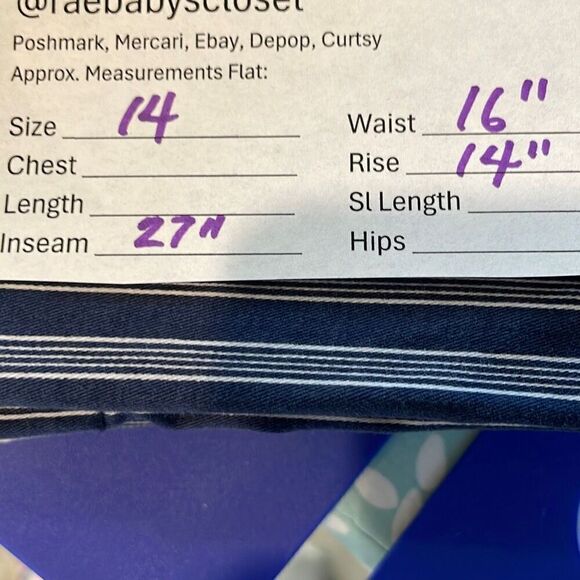 @raebabyscloset
Poshmark, Mercari, Ebay, Depop, Curtsy
Approx. Measurements Flat:
Size 14 Waist 16"
Chest Rise 14"
Length Sl Length
Inseam 27" Hips